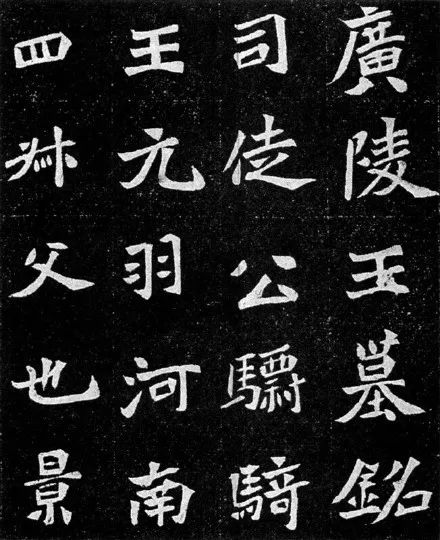 廣陵王墓銘
司徒公驃騎
王元羽河南
四叔父也景